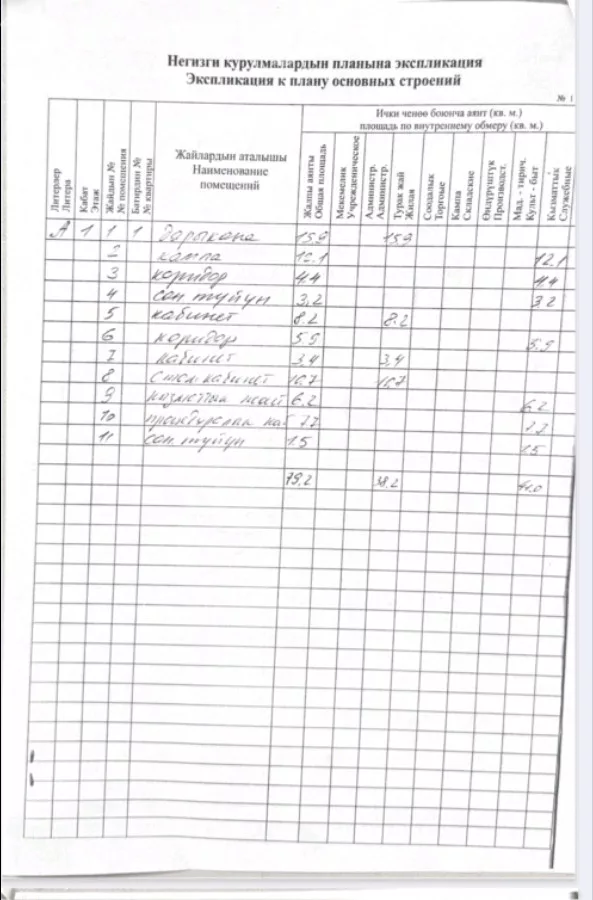 Негизги курулмалардын планына экспликация
Экспликация к плану основных строений
№ 1
Литерлер
Литера
Кабат
Этаж
Жайдын №
№ помещения
Батирдин №
№ квартиры
Жайлардын аталышы
Наименование
помещений
Ички ченөө боюнча аянт (кв. м.)
площадь по внутреннему обмеру (кв. м.)
Жалпы аянты
Общая площадь
Мекемелик
Учрежденическое
Администр.
Администр.
Турак жай
Жилая
Соодалык
Торговые
Кампа
Складские
Өндүрүштүк
Производст.
Мад. - тирич.
Культ - быт
Кызматтык
Служебные
А 1 1 1 Дарыкана 15,9 15,9
2 кампа 12,1 12,1
3 коридор 4,4 4,4
4 сан туйун 3,2 3,2
5 кабинет 8,2 8,2
6 коридор 5,9 5,9
7 кабинет 3,4 3,4
8 Стом кабинет 10,7 10,7
9 6,2 6,2
10 каб 7,7 7,7
11 сан туйун 1,5 1,5
79,2 38,2 41,0